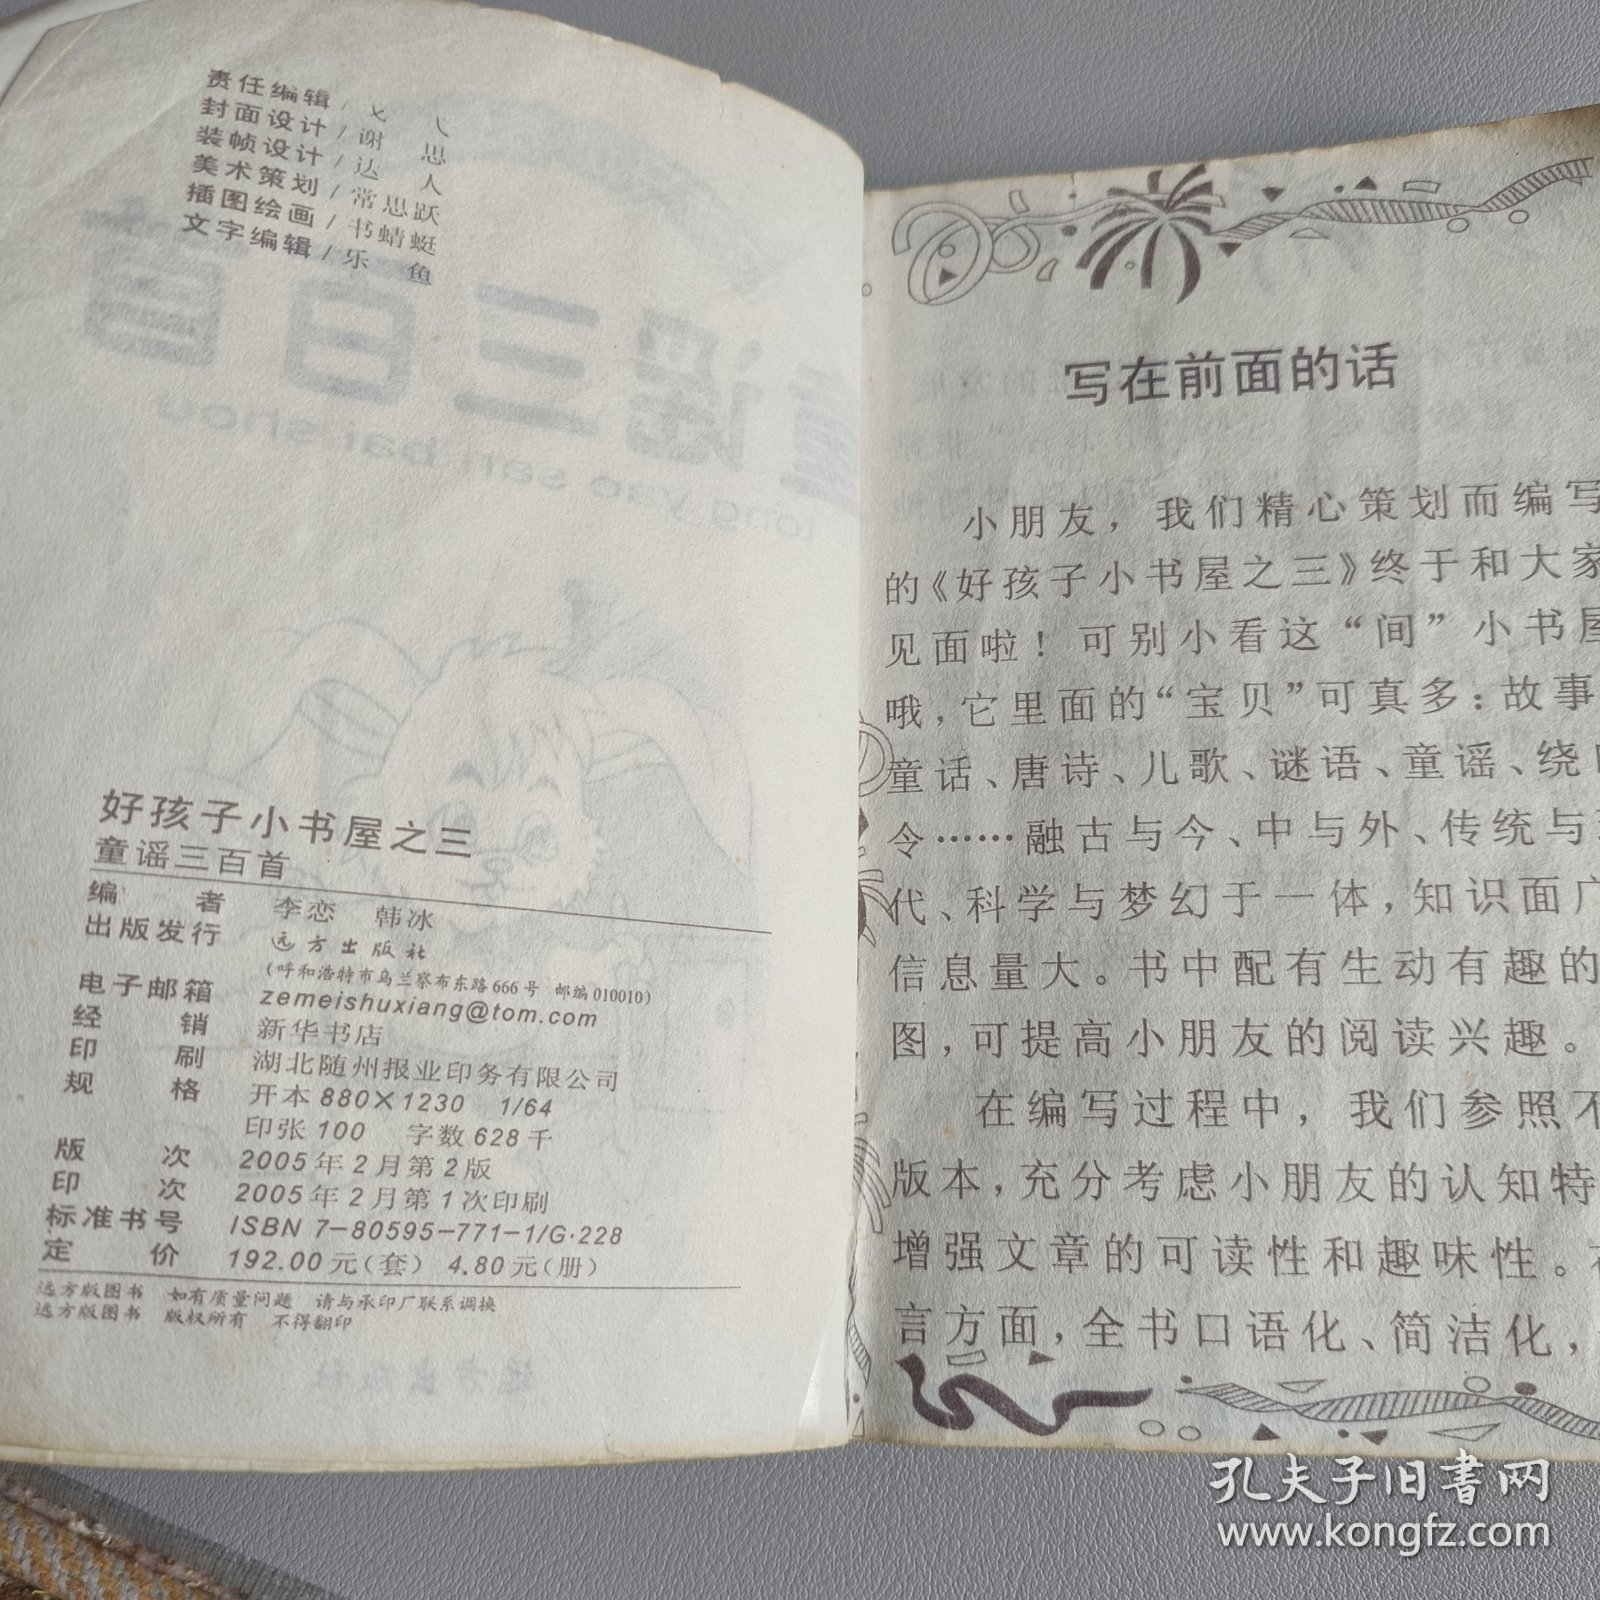 责任编辑/戈 弋
封面设计/谢 思
装帧设计/达 人
美术策划/常思跃
插图绘画/书蜻蜓
文字编辑/乐 鱼
好孩子小书屋之三
童谣三百首
编 者 李恋 韩冰
出版发行 远方出版社
(呼和浩特市乌兰察布东路666号 邮编010010)
电子邮箱 zemeishuxiang@tom.com
经 销 新华书店
印 刷 湖北随州报业印务有限公司
规 格 开本880×1230 1/64
印张100 字数628千
版 次 2005年2月第2版
印 次 2005年2月第1次印刷
标准书号 ISBN 7-80595-771-1/G·228
定 价 192.00元(套) 4.80元(册)
远方版图书 如有质量问题 请与承印厂联系调换
远方版图书 版权所有 不得翻印
写在前面的话
小朋友，我们精心策划而编写
的《好孩子小书屋之三》终于和大家
见面啦！可别小看这“间”小书屋
哦，它里面的“宝贝”可真多：故事
童话、唐诗、儿歌、谜语、童谣、绕口
令……融古与今、中与外、传统与
代、科学与梦幻于一体，知识面广
信息量大。书中配有生动有趣的
图，可提高小朋友的阅读兴趣。
在编写过程中，我们参照不
版本，充分考虑小朋友的认知特
增强文章的可读性和趣味性。
言方面，全书口语化、简洁化，
孔夫子旧书网
www.kongfz.com